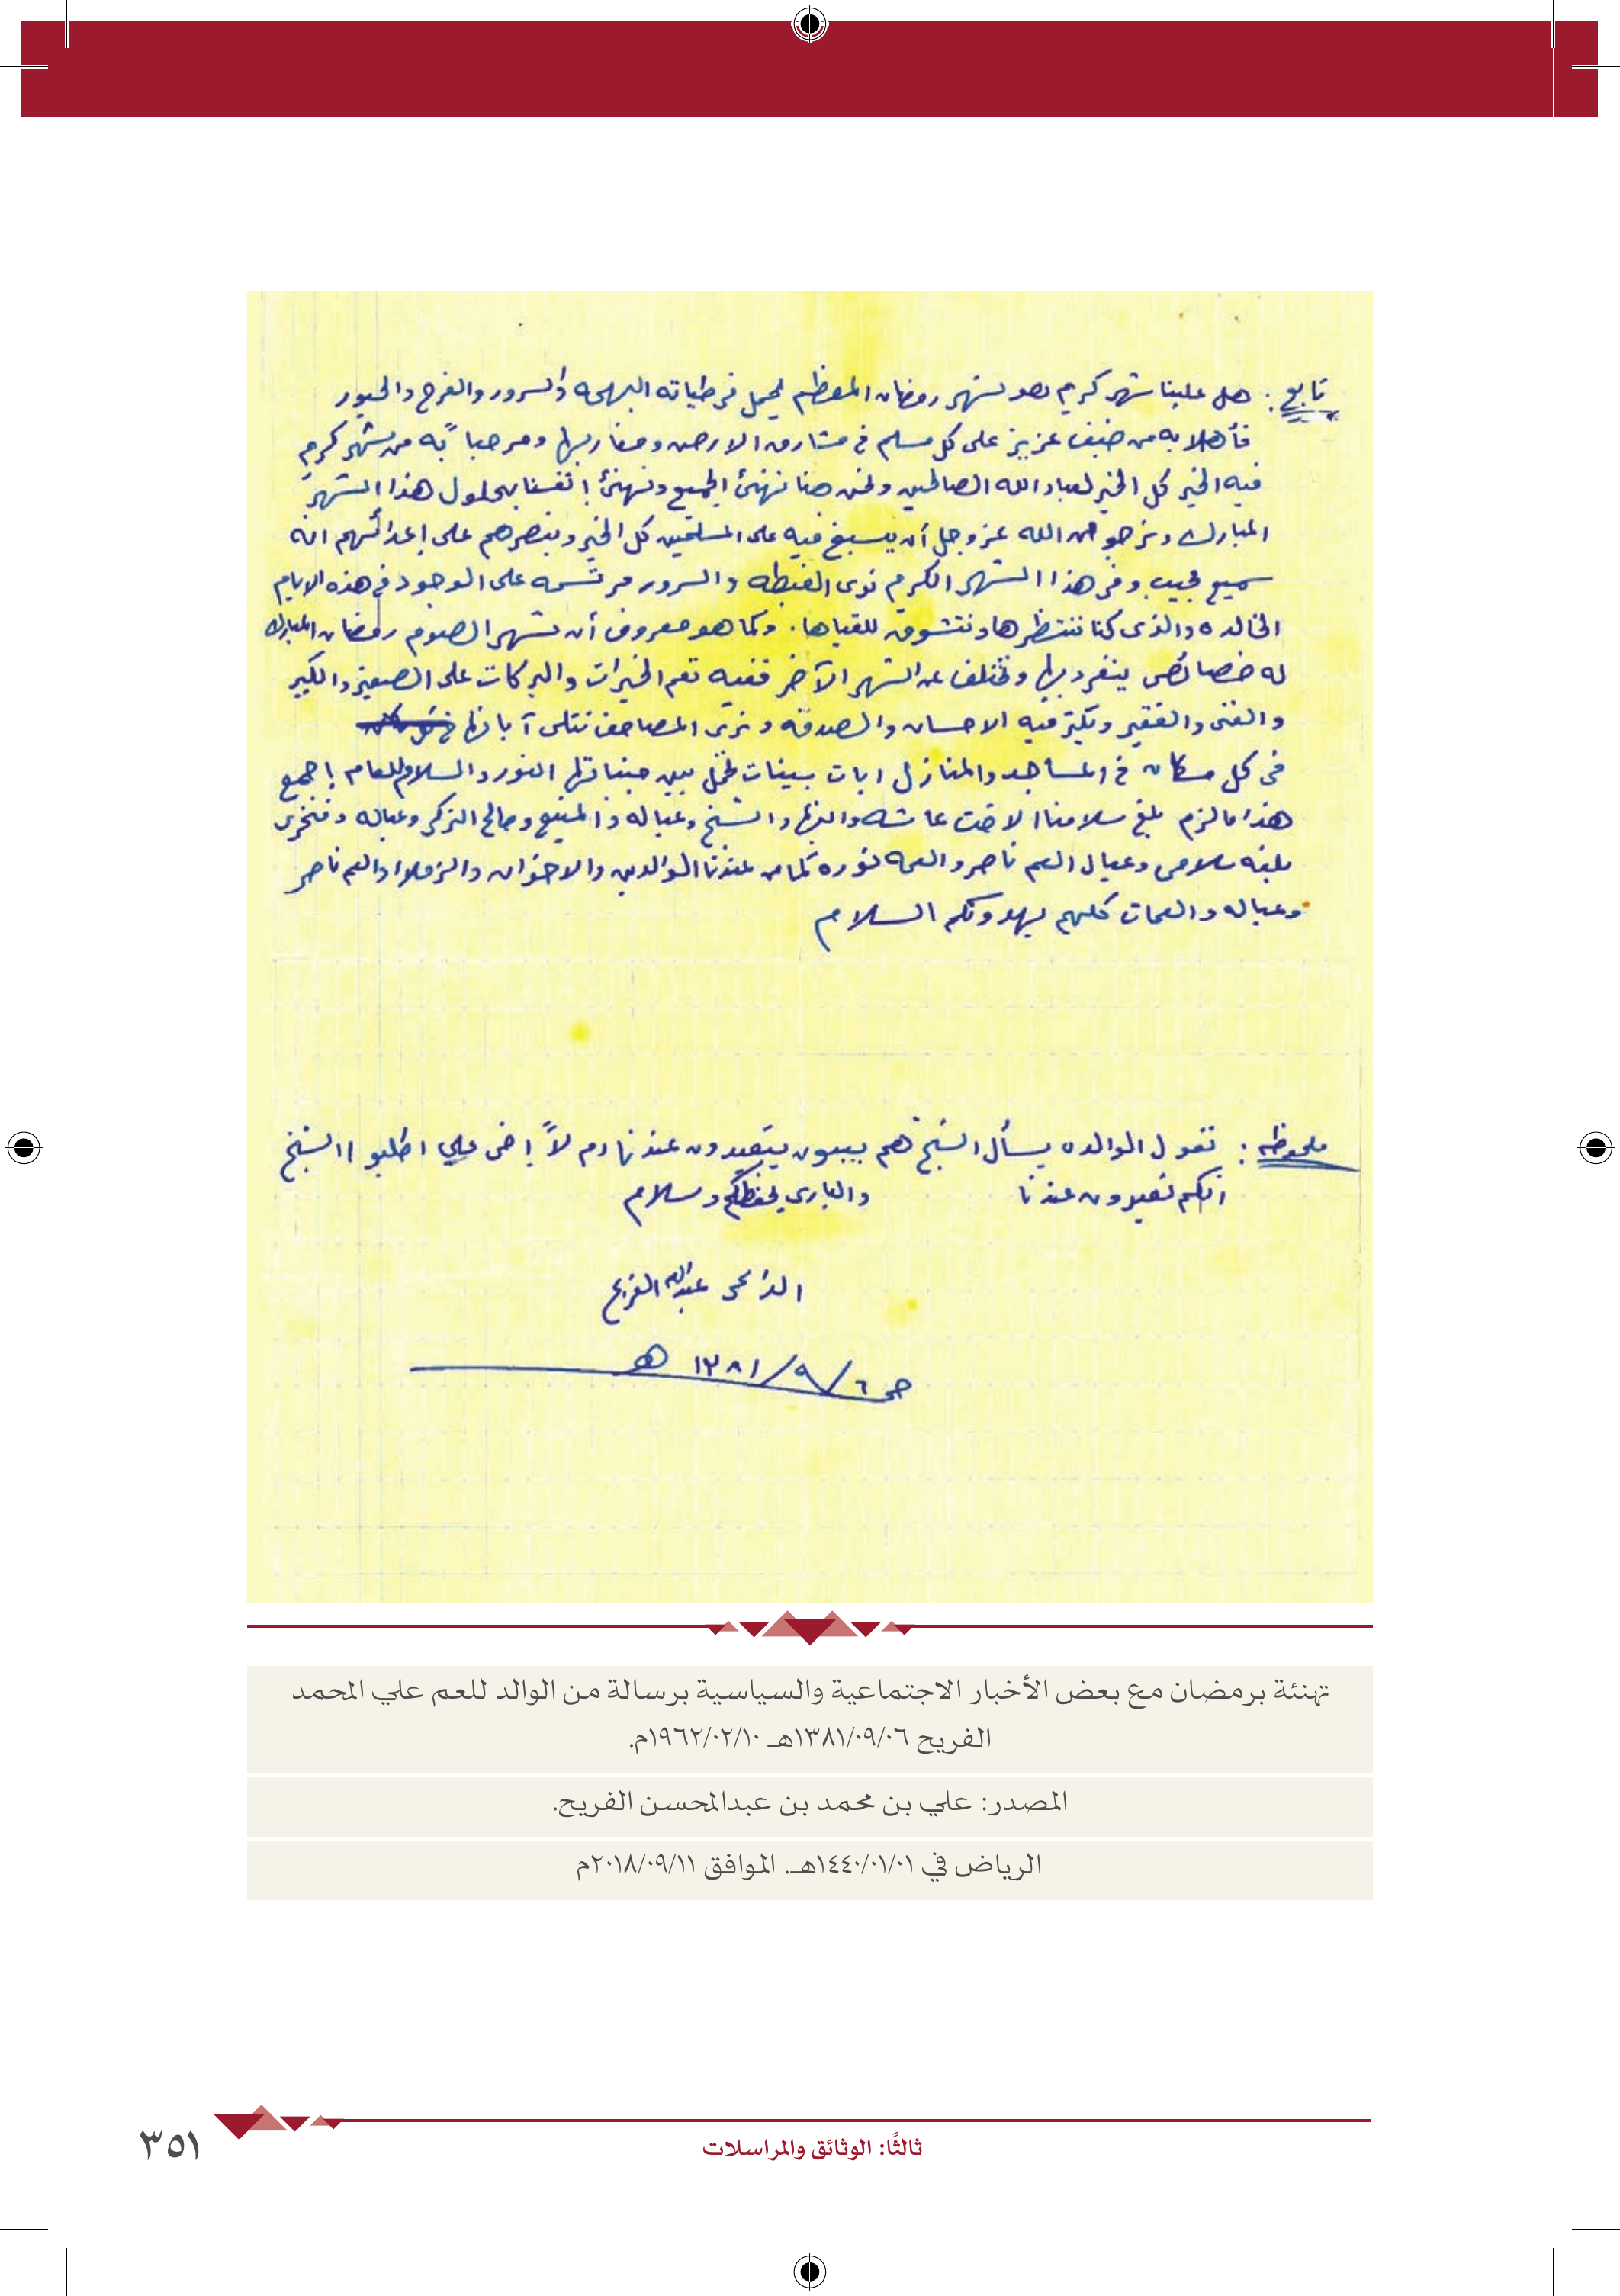 تابع : هل علينا شهر كريم هو شهر رمضان المعظم يحمل في طياته البهجه والسرور والفرح والحبور
فأهلا به من ضيف عزيز على كل مسلم في مشارق الارض ومغاربها ومرحباً به من شهر كريم
فيه الخير كل الخير لعباد الله الصالحين ونحن هنا نهنئ الجميع ونهنئ انفسنا بحلول هذا الشهر
المبارك ونرجو من الله عز وجل أن يسبغ فيه على المسلمين كل الخير وينصرهم على اعدائهم انه
سميع مجيب وفي هذا الشهر الكريم نرى الغبطه والسرور مرتسمه على الوجوه في هذه الايام
الخالده والذي كنا ننتظرها ونتشوق للقياها . وكما هو معروف أن شهر الصوم رمضان المبارك
له خصائص ينفرد بها وتختلف عن الشهر الآخر ففيه تعم الخيرات والبركات على الصغير والكبير
والغني والفقير وتكثر فيه الاحسان والصدقه ونرى المصاحف تتلى آياتها
في كل مكان في المساجد والمنازل ايات بينات تحمل بين جنباتها النور والسلام للعام اجمع
هذا مالزم بلغ سلامنا الاخت عائشه والشيخ وعياله والمنيع وصالح التركي وعياله
بلغه سلامي وعيال العم ناصر والعمه نوره كما من عندنا الوالدين والاخوان والزملاء والعم ناصر
وعياله والعمات كلهم يهدونكم السلام
ملحوظه : تقول الوالده يسأل الشيخ هم يبون يقيدون عندنا ام لا اخي علي اطلبوا الشيخ
انكم تقيدون عندنا والباري يحفظكم وسلام
الداعي عبدالله الفريح
حـ ٦/٩/١٣٨١ هـ
تهنئة برمضان مع بعض الأخبار الاجتماعية والسياسية برسالة من الوالد للعم علي المحمد
الفريح ١٣٨١/٠٩/٠٦هـ ١٩٦٢/٠٢/١٠م.
المصدر: علي بن محمد بن عبدالمحسن الفريح.
الرياض في ١٤٤٠/٠١/٠١هـ. الموافق ٢٠١٨/٠٩/١١م
ثالثًا: الوثائق والمراسلات
٣٥١